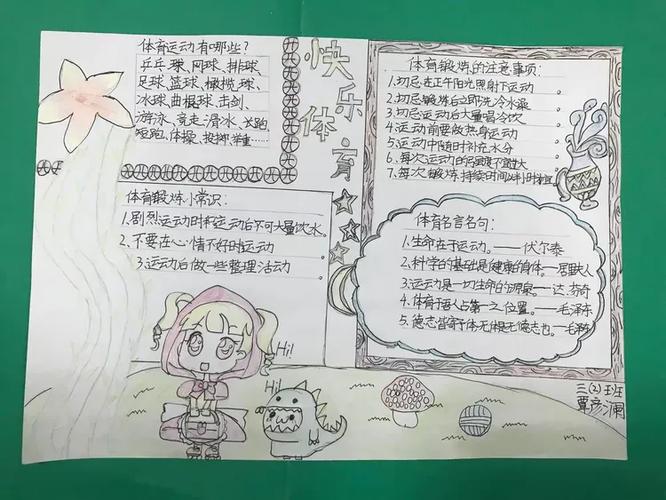 快乐体育
体育运动有哪些?
乒乓球、网球、排球、
足球、篮球、橄榄球、
冰球、曲棍球、击剑、
游泳、竞走、滑冰、长跑、
短跑、体操、投掷、举重……
体育锻炼小常识:
1.剧烈运动时和运动后不可大量饮水。
2.不要在心情不好时运动
3.运动后做一些整理活动
体育锻炼的注意事项:
1.切忌在正午阳光照射下运动
2.切忌锻炼后立即洗冷水澡
3.切忌运动后大量喝冷饮
4.运动前要做热身运动
5.运动中随时补水分
6.每次运动的强度不宜过大
7.每次锻炼持续时间以半小时
体育名言名句:
1.生命在于运动。——伏尔泰
2.科学的基础是健康的身体。—居里夫人
3.运动是一切生命的源泉。—达.芬奇
4.体育于吾人占第一之位置。—毛泽东
5.德志皆寄于体,无体是无德志也。—毛泽东
Hi!
Hi!
三(2)班
覃彦澜